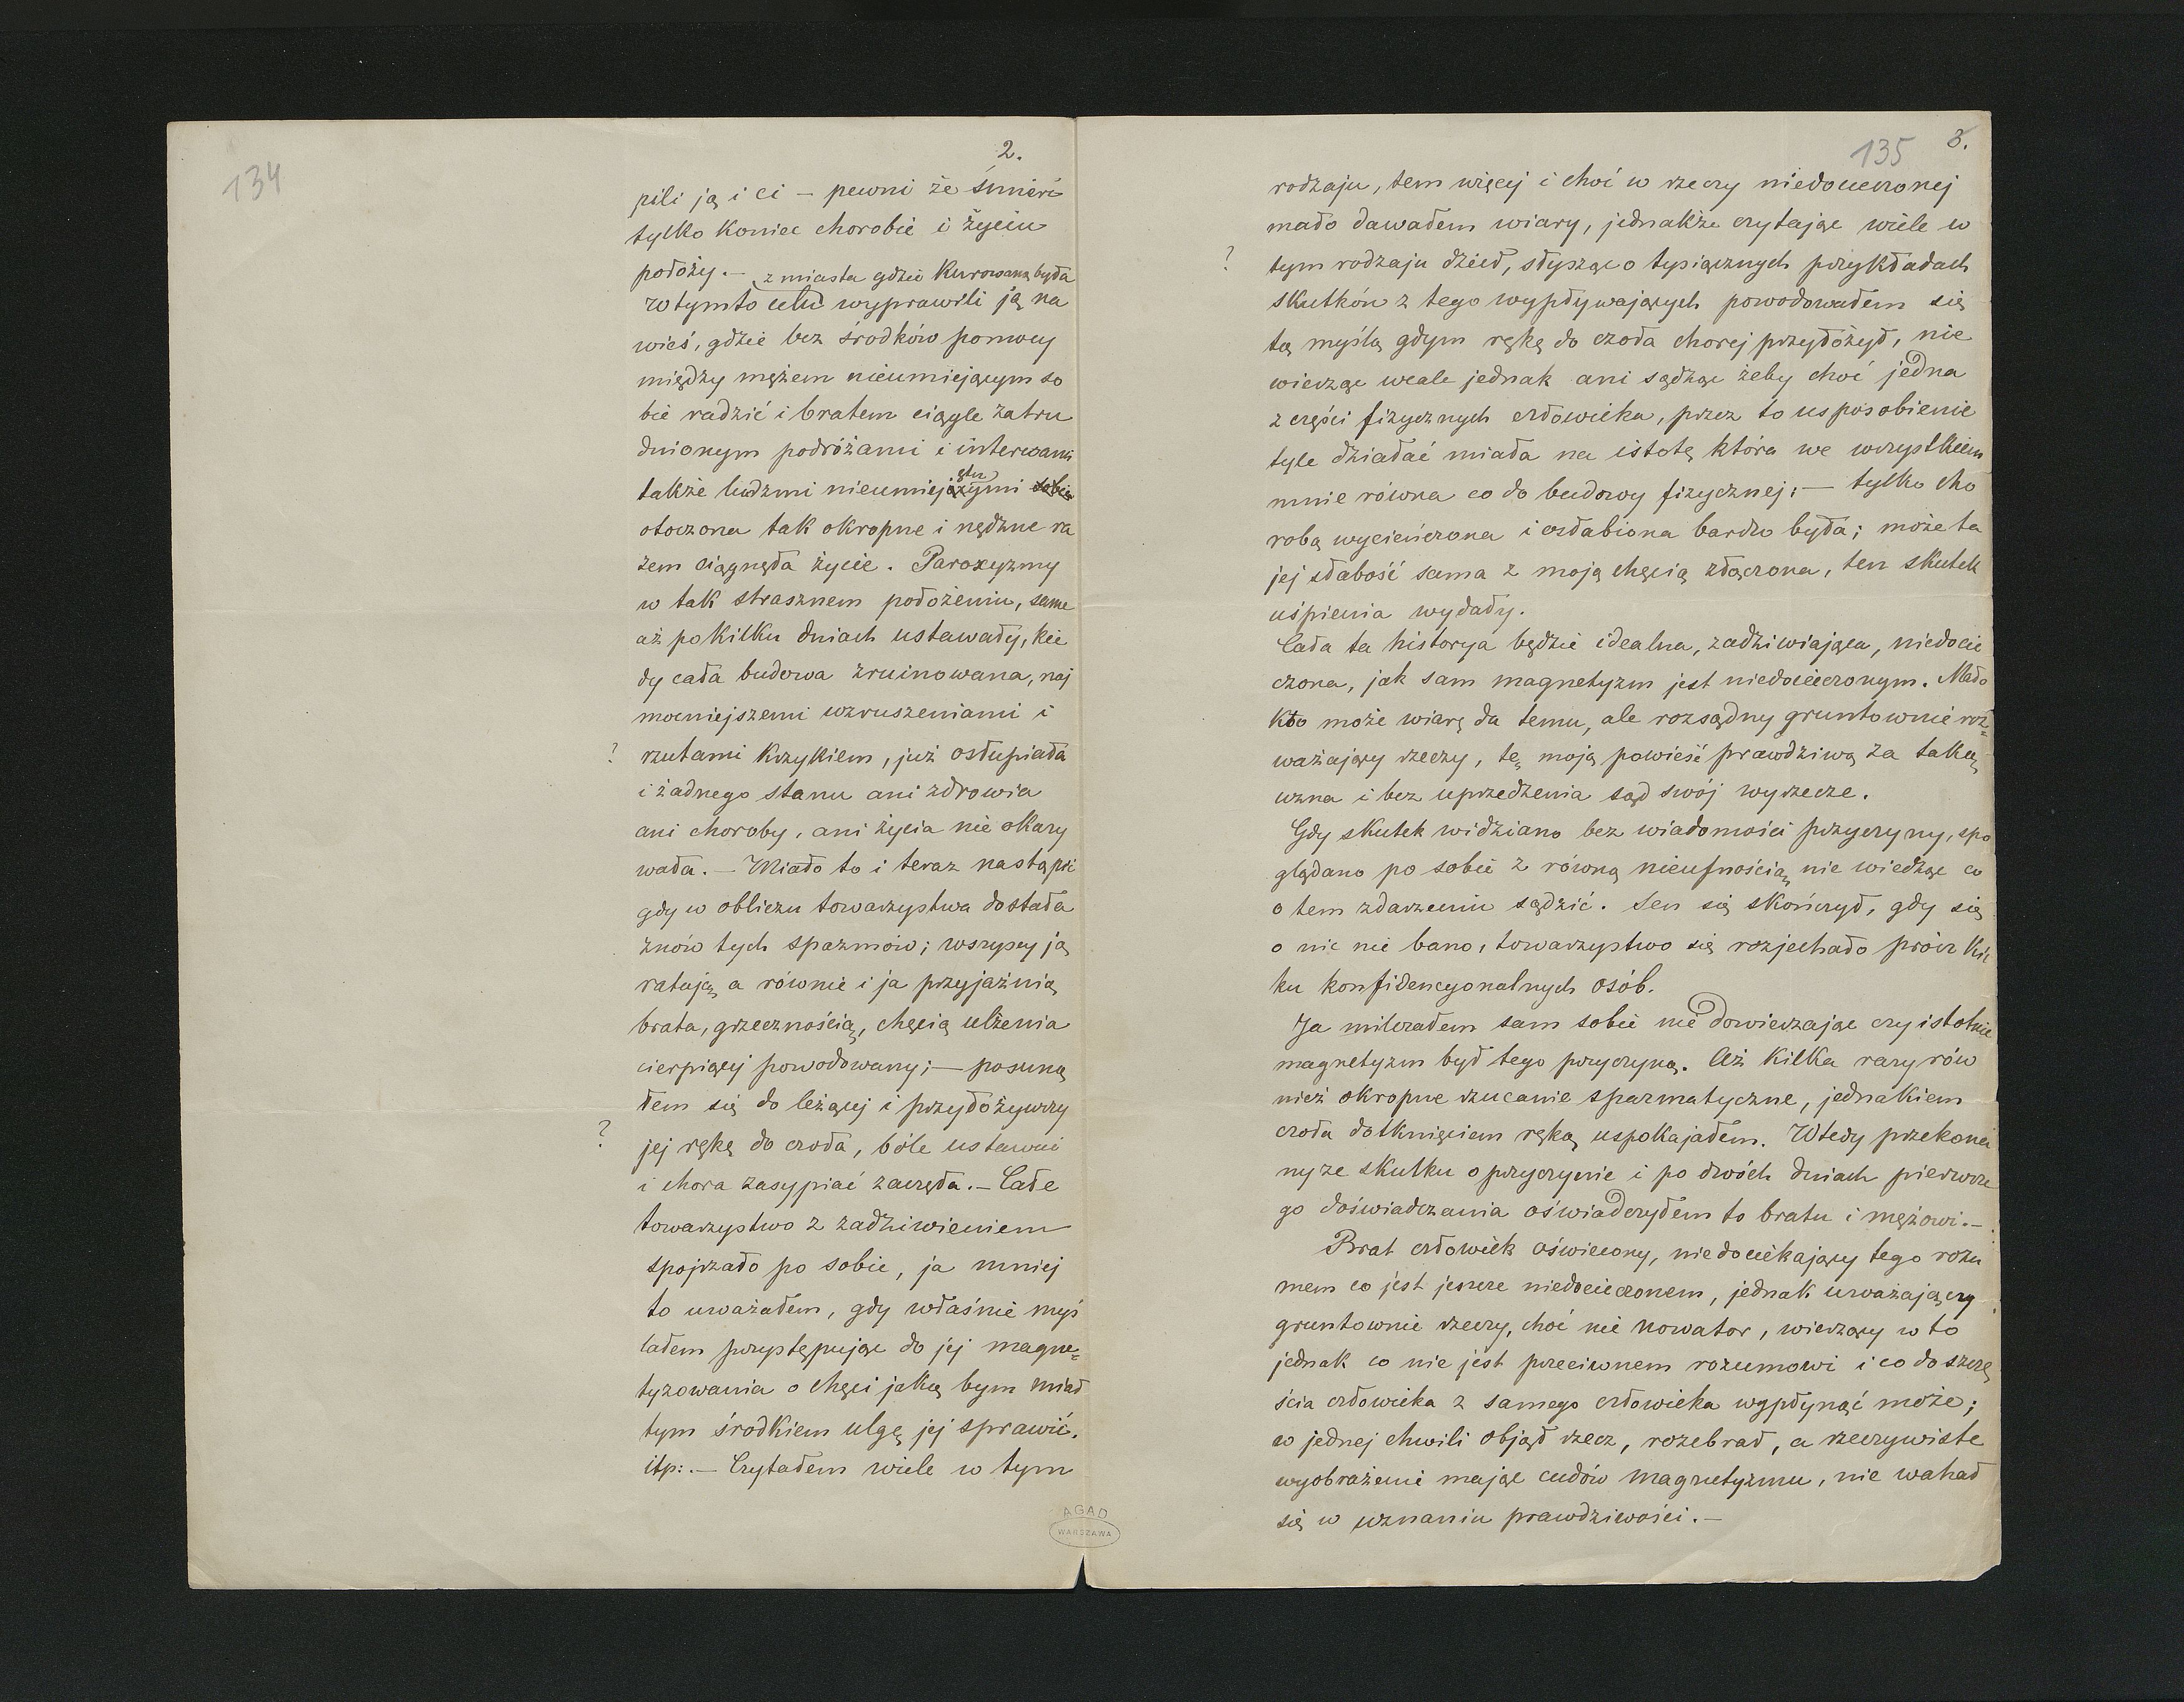 134
2.
pili ją i ci – pewni że śmierć
tylko koniec chorobie i życiu
położy. – z miasta gdzie kurowaną była
w tymto celu wyprawili ją na
wieś, gdzie bez środków pomocy
między mężem nieumiejącym so
bie radzić i bratem ciągle zatru
dnionym podróżami i interesami
także ludźmi nieumiejętnymi sobie
otoczona tak okropne i nędzne ra
zem ciągnęła życie. Paroxyzmy
w tak strasznem położeniu, same
aż po kilku dniach ustawały, kie
dy cała budowa zruinowana, naj
mocniejszemi wzruszeniami i
? rzutami krzykiem, już osłupiała
i żadnego stanu ani zdrowia
ani choroby, ani życia nie okazy
wała. – Miało to i teraz nastąpić
gdy w obliczu towarzystwa dostała
znów tych spazmów; wszyscy ją
ratują, a równie i ja przyjaźnią
brata, grzecznością, chęcią ulżenia
cierpiącej powodowany; – posuną
łem się do leżącej i przyłożywszy
? jej rękę do czoła, bóle ustawać
i chora zasypiać zaczęła. – Całe
towarzystwo z zadziwieniem
spojrzało po sobie, ja mniej
to uważałem, gdy właśnie myś
lałem przystępując do jej magne=
tyzowania o chęci jaką bym miał
tym środkiem ulgę jej sprawić.
itp: – Czytałem wiele w tym
AGAD
WARSZAWA
135
3.
rodzaju, tem więcej i choć w rzeczy niedocieczonej
mało dawałem wiary, jednakże czytając wiele w
? tym rodzaju dzieł, słysząc o tysiącznych przykładach
skutków z tego wypływających powodowałem się
tą myślą gdym rękę do czoła chorej przyłożył, nie
wierząc wcale jednak ani sądząc żeby choć jedna
z części fizycznych człowieka, przez to usposobienie
tyle działać miała na istotę która we wszystkiem
mnie równa co do budowy fizycznej; – tylko cho
robą wycieńczona i osłabiona bardzo była; może ta
jej słabość sama z moją chęcią złączona, ten skutek
uśpienia wydały.
Cała ta historya będzie idealna, zadziwiająca, niedocie
czona, jak sam magnetyzm jest niedocieczonym. Mało
kto może wiarę da temu, ale rozsądny gruntownie roz=
ważający rzeczy, tę moją powieść prawdziwą za taką
uzna i bez uprzedzenia sąd swój wyrzecze.
Gdy skutek widziano bez wiadomości przyczyny, spo
glądano po sobie z równą nieufnością, nie wiedząc co
o tem zdarzeniu sądzić. Sen się skończył, gdy się
o nic nie bano, towarzystwo się rozjechało prócz kil
ku konfidencyonalnych osób.
Ja milczałem sam sobie nie dowierzając czy istotnie
magnetyzm był tego przyczyną. Aż kilka razy rów
nież okropne rzucanie spazmatyczne, jednakiem
czoła dotknięciem ręką, uspokajałem. Wtedy przekona
ny ze skutku o przyczynie i po dwóch dniach pierwsze
go doświadczania oświadczyłem to bratu i mężowi. –
Brat człowiek oświecony, niedociekający tego rozu
mem co jest jeszcze niedocieczonem, jednak uważający
gruntownie rzeczy, choć nie nowator, wierzący w to
jednak co nie jest przeciwnem rozumowi i co do szczę
ścia człowieka z samego człowieka wypłynąć może;
w jednej chwili objął rzecz, rozebrał, a rzeczywiste
wyobrażenie mając cudów magnetyzmu, nie wahał
się w uznaniu prawdziwości. –